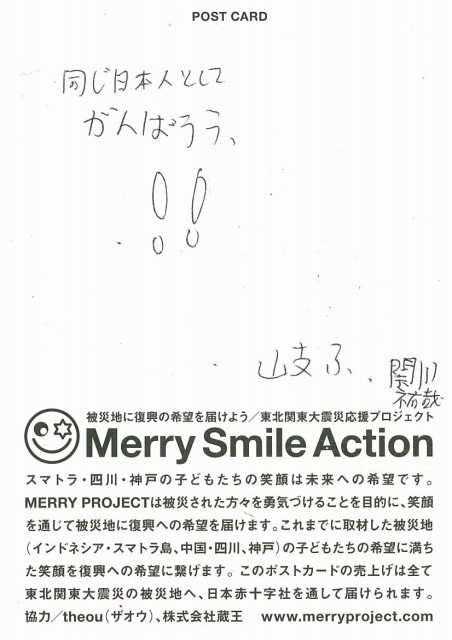 POST CARD
同じ日本人として
がんばろう、
!!
山支ふ、、関川
祐哉
被災地に復興の希望を届けよう／東北関東大震災応援プロジェクト
Merry Smile Action
スマトラ・四川・神戸の子どもたちの笑顔は未来への希望です。
MERRY PROJECTは被災された方々を勇気づけることを目的に、笑顔
を通じて被災地に復興への希望を届けます。これまでに取材した被災地
（インドネシア・スマトラ島、中国・四川、神戸）の子どもたちの希望に満ち
た笑顔を復興への希望に繋げます。このポストカードの売上げは全て
東北関東大震災の被災地へ、日本赤十字社を通して届けられます。
協力／theou（ザオウ）、株式会社蔵王 www.merryproject.com